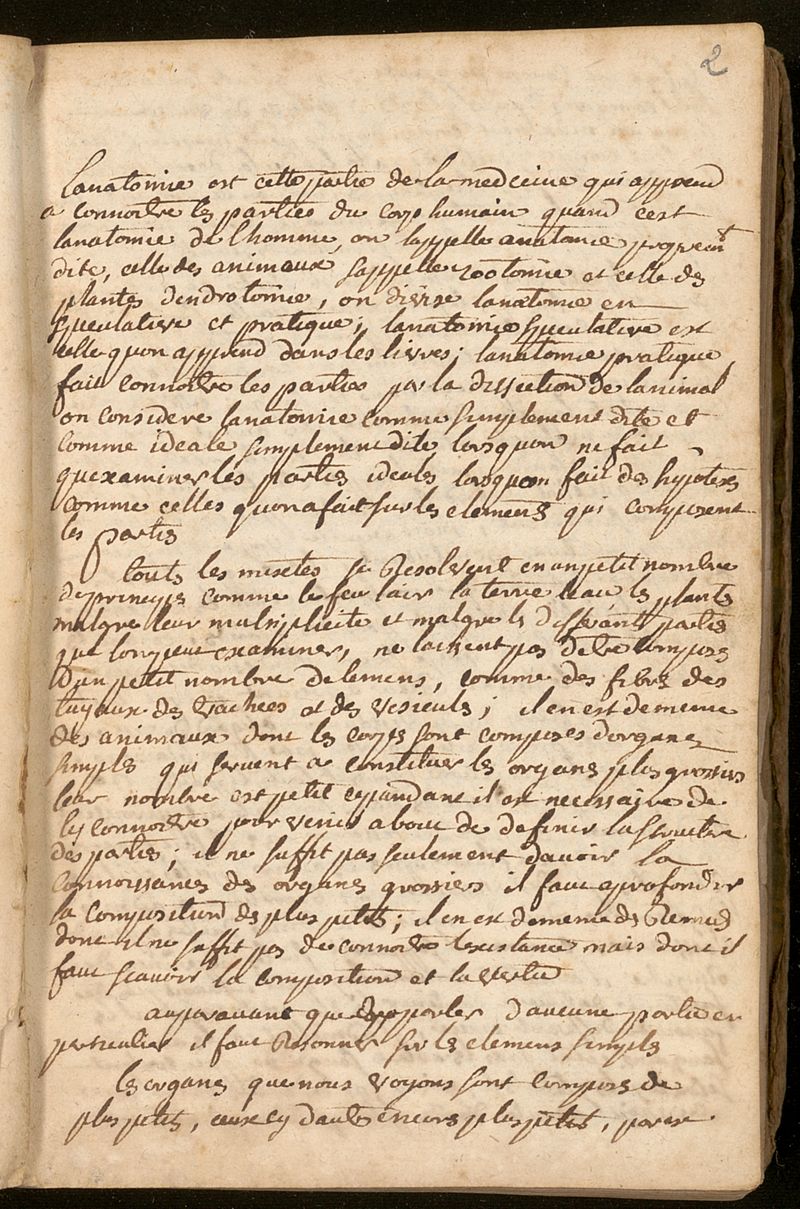 2
Lanatomie est cette partie de la medecine qui apprend
a connoitre les parties du corps humain quand cest
lanatomie de lhomme, on lappelle anatomie proprem^t
dite, celle des animaux sappelle zootomie et celle des
plantes dendrotomie, on divise lanatomie en
speculative et pratique; lanatomie speculative est
celle quon apprend dans les livres; lanatomie pratique
fait connoitre les parties par la dissection de lanimal
on considere lanatomie comme simplement dite et
comme ideale simplement dite lorsquon ne fait
quexaminer les parties ideales lorsquon fait des hypoteses
comme celles quon a fait sur les elemens qui composent
les parties
touts les mixtes se Resolvent en un petit nombre
de principes comme le feu lair la terre leau les plantes
malgre leur multiplicite et malgre les differants parties
que lon peut examiner, ne laissent pas detre composes
dun petit nombre delemens, comme des fibres des
tuyaux des trachees et des vesicules; il en est de meme
des animaux dont les corps sont composes dorganes
simples qui servent a constituer les organes plus grossiers
leur nombre est petit cependant il est necessaire de
les connoitre pour venir a bout de definir la structure
des parties; il ne suffit pas seulement davoir la
connoissances des organes grossiers il faut aprofondir
la composition des plus petits; il en est de meme des Remedes
dont il ne suffit pas de connoitre lexistance mais dont il
faut scavoir la composition et la vertu
auparavant que de parler daucune partie en
particulier il faut Resonner sur les elemens simples
les organes que nous voyons sont composes de
plus petits, ceux cy dautres encore plus petits,